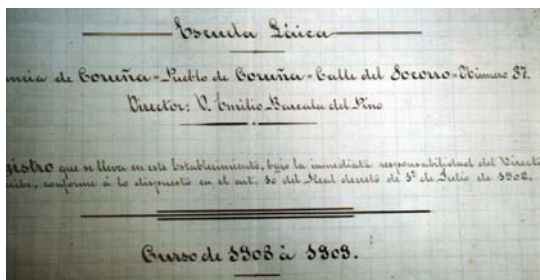 Escuela Laica
incia de Coruña - Pueblo de Coruña - Calle del Socorro - Número 37.
Director: D. Emilio Barcala del Pino
gistro que se lleva en este Establecimiento, bajo la inmediata responsabilidad del Directo
cribe, conforme á lo dispuesto en el art. 10 del Real decreto de 1º de Julio de 1902.
Curso de 1908 á 1909.